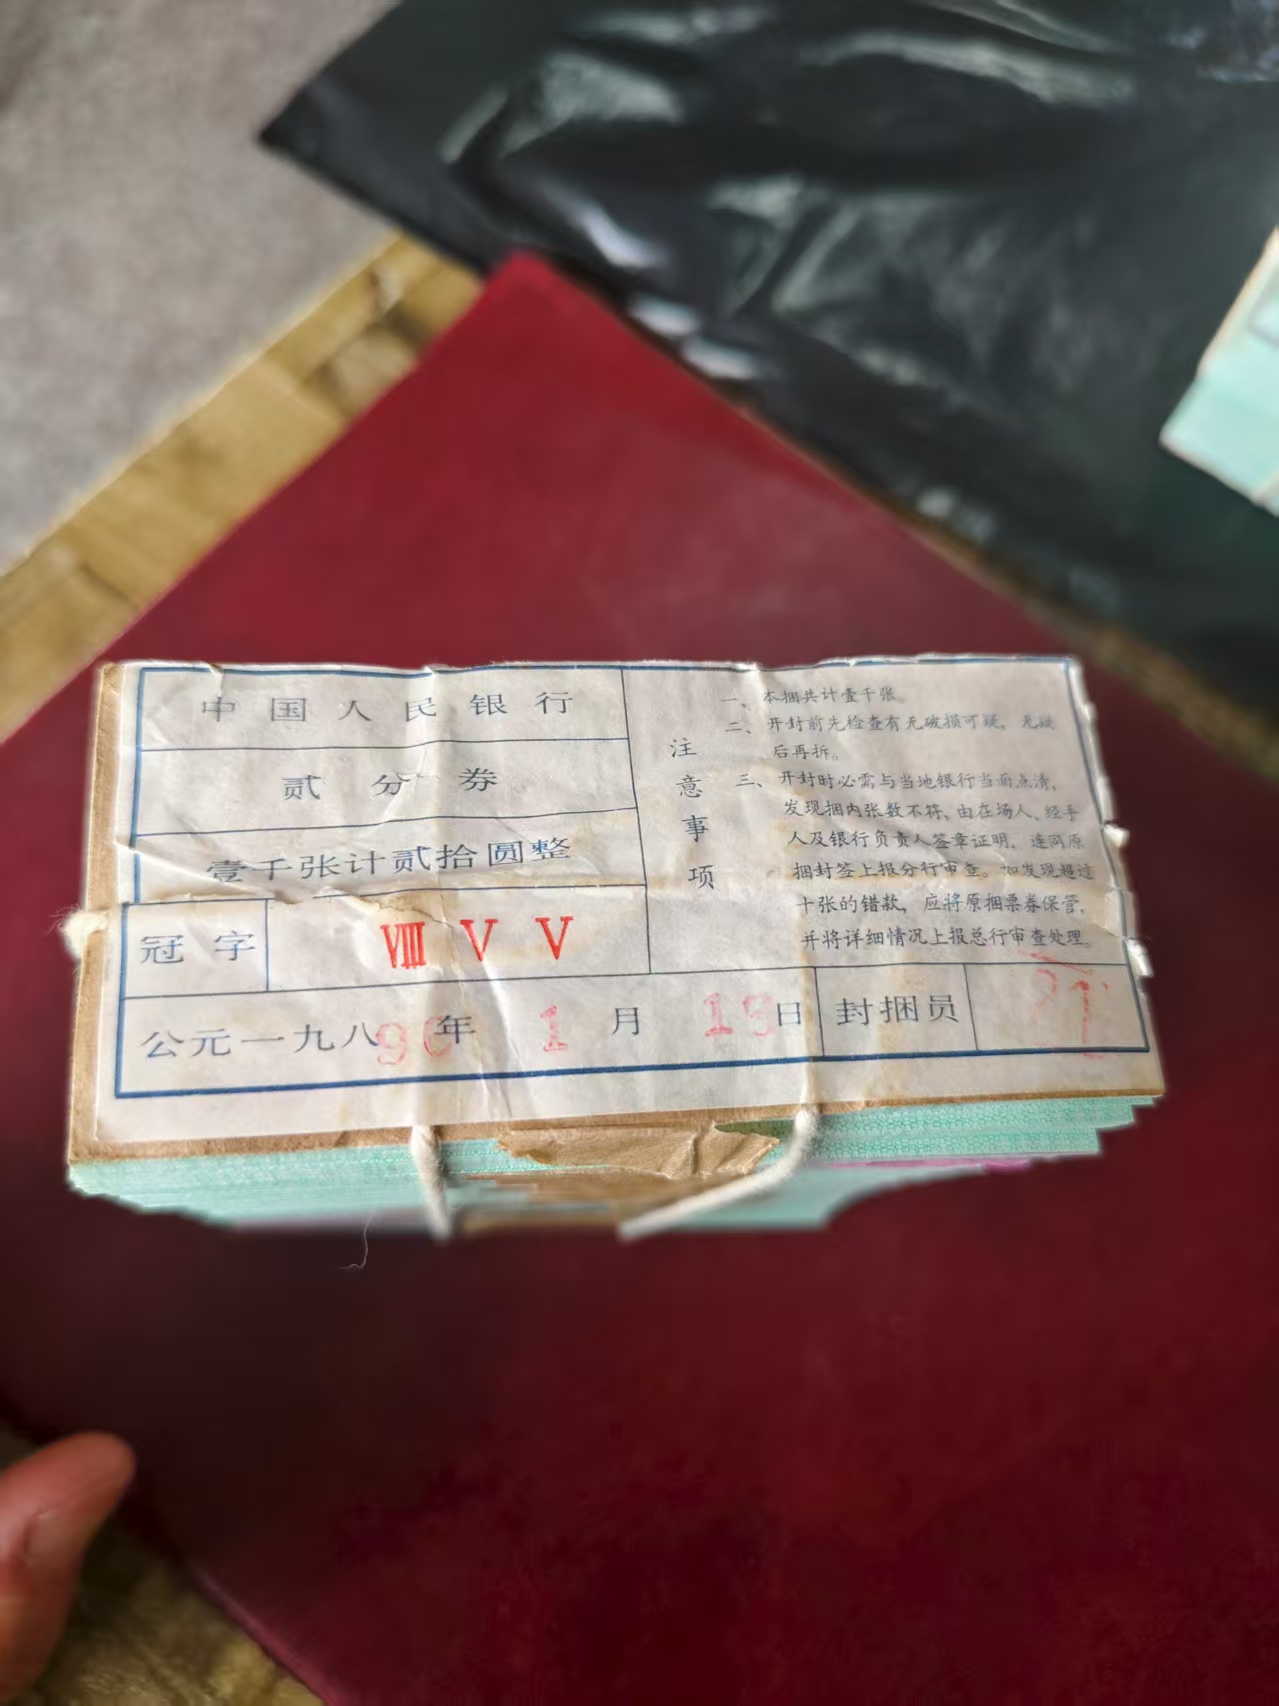 中国人民银行
贰分券
壹千张计贰拾圆整
冠字 Ⅷ Ⅴ Ⅴ
公元一九八90年 1月 19日
封捆员
注意事项
一、本捆共计壹千张。
二、开封前先检查有无破损可疑，无疑
后再拆。
三、开封时必需与当地银行当面点清，
发现捆内张数不符、由在场人、经手
人及银行负责人签章证明，连同原
捆封签上报分行审查。如发现超过
十张的错款，应将原捆票券保管，
并将详细情况上报总行审查处理。